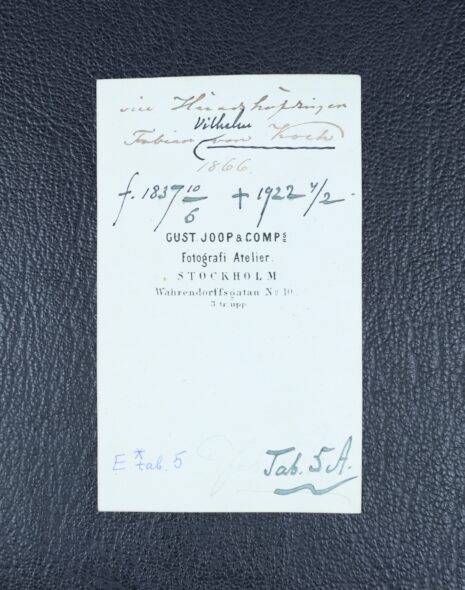 vice Häradshöfdingen
Vilhelm
Fabian von Koch
1866.
f. 1837 10/6 + 1922 4/2 -
GUST. JOOP & COMPS
Fotografi Atelier.
STOCKHOLM
Wahrendorffsgatan No 10.
3 tr. upp.
E * tab. 5
Tab. 5 A.